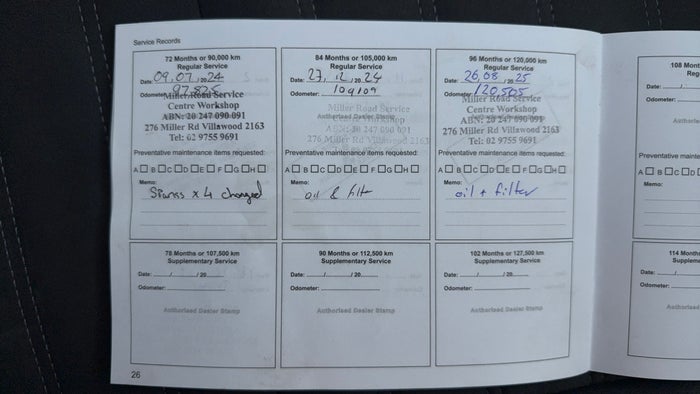 Service Records
72 Months or 90,000 km
Regular Service
Date: 09, 07, /20 24
Odometer: 97825
Miller Road Service
Centre Workshop
ABN: 20 247 090 091
276 Miller Rd Villawood 2163
Tel: 02 9755 9691
Preventative maintenance items requested:
A B C D E F G H
Memo:
Sparks x 4 changed
84 Months or 105,000 km
Regular Service
Date: 27, 12 /20 24
Odometer: 109109
Miller Road Service
Authorised Dealer Stamp
Centre Workshop
ABN: 20 247 090 091
276 Miller Rd Villawood 2163
Preventative maintenance items requested:
A B C D E F G H
Memo:
oil & filter
96 Months or 120,000 km
Regular Service
Date: 26,08 /20 25
Odometer: 120,505
Miller Road Service
Centre Workshop
ABN: 20 247 090 091
276 Miller Rd Villawood 2163
Tel: 02 9755 9691
Preventative maintenance items requested:
A B C D E F G H
Memo:
oil + filter
108 Mont
Reg
Date: /
Odometer:
Preventative mainten
A B C D
Memo:
78 Months or 107,500 km
Supplementary Service
Date: / /20
Odometer:
Authorised Dealer Stamp
90 Months or 112,500 km
Supplementary Service
Date: / /20
Odometer:
Authorised Dealer Stamp
102 Months or 127,500 km
Supplementary Service
Date: / /20
Odometer:
Authorised Dealer Stamp
114 Months
Supplem
Date: /
Odometer:
26